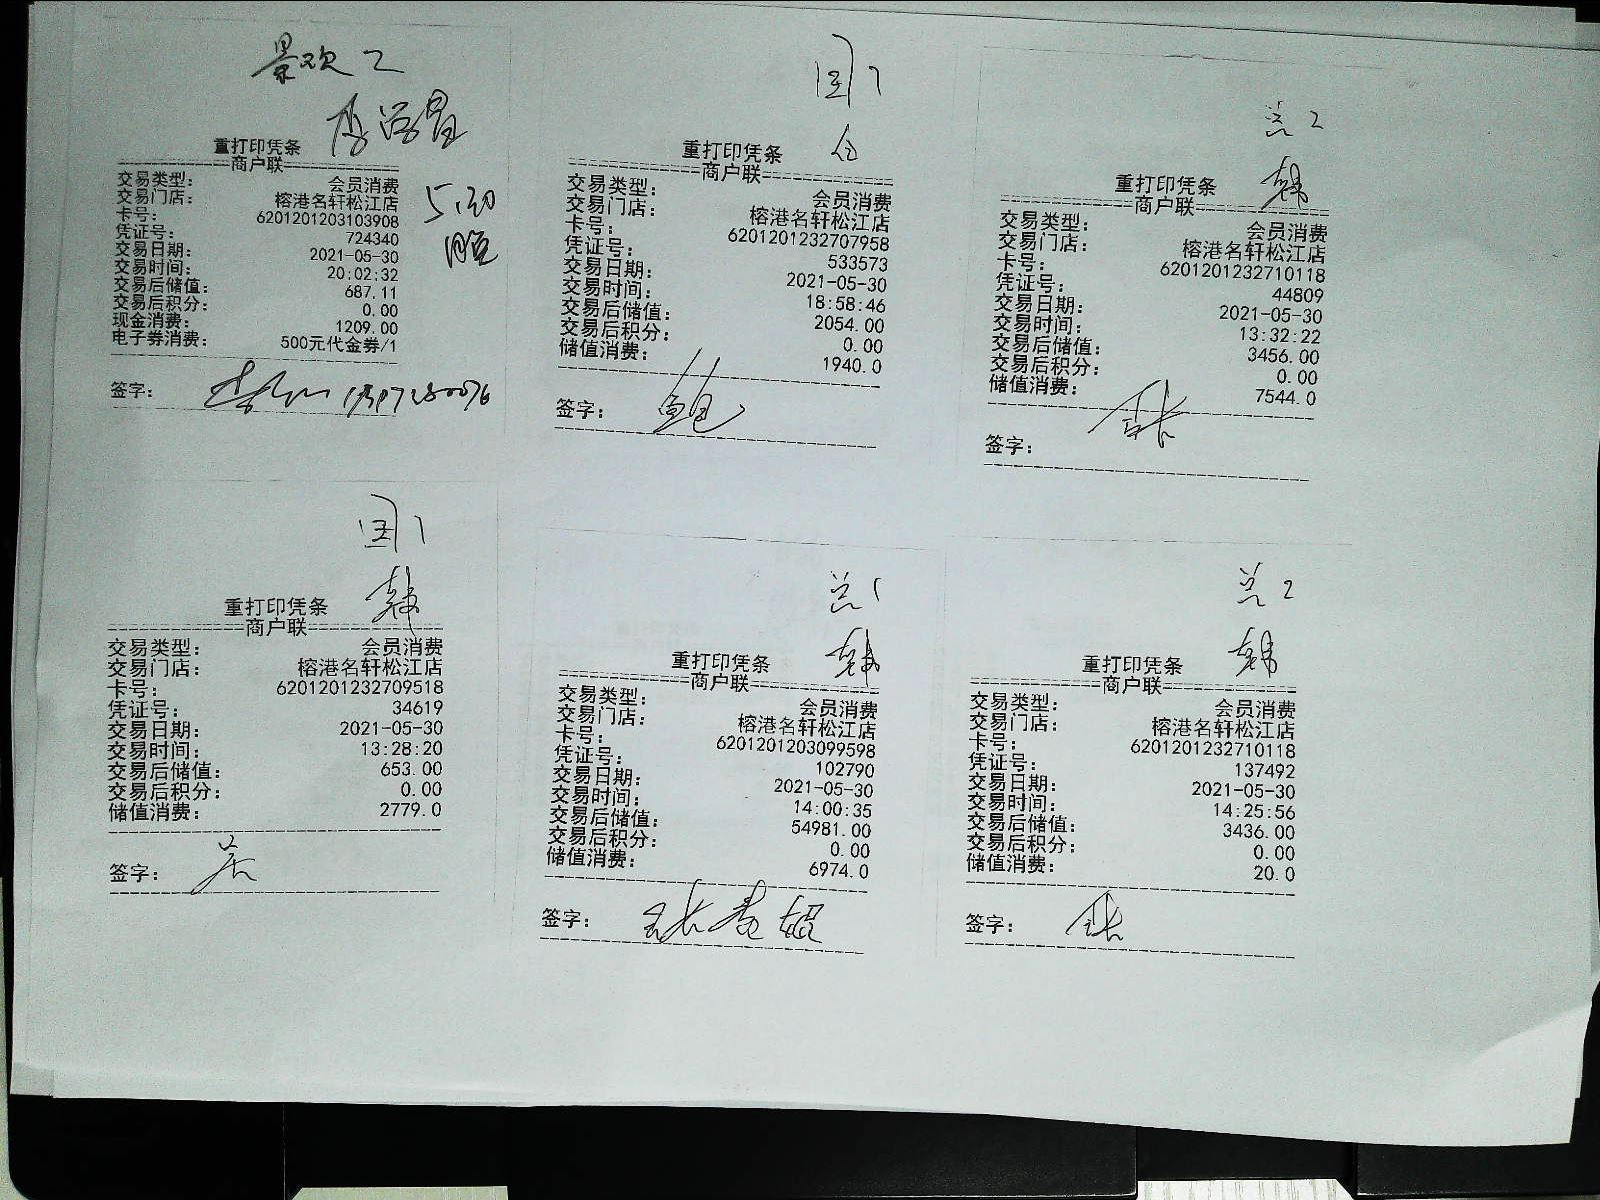 景欢2
5.30
重打印凭条
商户联
交易类型： 会员消费
交易门店： 榕港名轩松江店
卡号： 6201201203103908
凭证号： 724340
交易日期： 2021-05-30
交易时间： 20:02:32
交易后储值： 687.11
交易后积分： 0.00
现金消费： 1209.00
电子券消费： 500元代金券/1
签字：
国1
重打印凭条
商户联
交易类型： 会员消费
交易门店： 榕港名轩松江店
卡号： 6201201232707958
凭证号： 533573
交易日期： 2021-05-30
交易时间： 18:58:46
交易后储值： 2054.00
交易后积分： 0.00
储值消费： 1940.0
签字： 鲍
兰2
韩
重打印凭条
商户联
交易类型： 会员消费
交易门店： 榕港名轩松江店
卡号： 6201201232710118
凭证号： 44809
交易日期： 2021-05-30
交易时间： 13:32:22
交易后储值： 3456.00
交易后积分： 0.00
储值消费： 7544.0
签字：
国1
韩
重打印凭条
商户联
交易类型： 会员消费
交易门店： 榕港名轩松江店
卡号： 6201201232709518
凭证号： 34619
交易日期： 2021-05-30
交易时间： 13:28:20
交易后储值： 653.00
交易后积分： 0.00
储值消费： 2779.0
签字：
兰1
韩
重打印凭条
商户联
交易类型： 会员消费
交易门店： 榕港名轩松江店
卡号： 6201201203099598
凭证号： 102790
交易日期： 2021-05-30
交易时间： 14:00:35
交易后储值： 54981.00
交易后积分： 0.00
储值消费： 6974.0
签字：
兰2
韩
重打印凭条
商户联
交易类型： 会员消费
交易门店： 榕港名轩松江店
卡号： 6201201232710118
凭证号： 137492
交易日期： 2021-05-30
交易时间： 14:25:56
交易后储值： 3436.00
交易后积分： 0.00
储值消费： 20.0
签字：